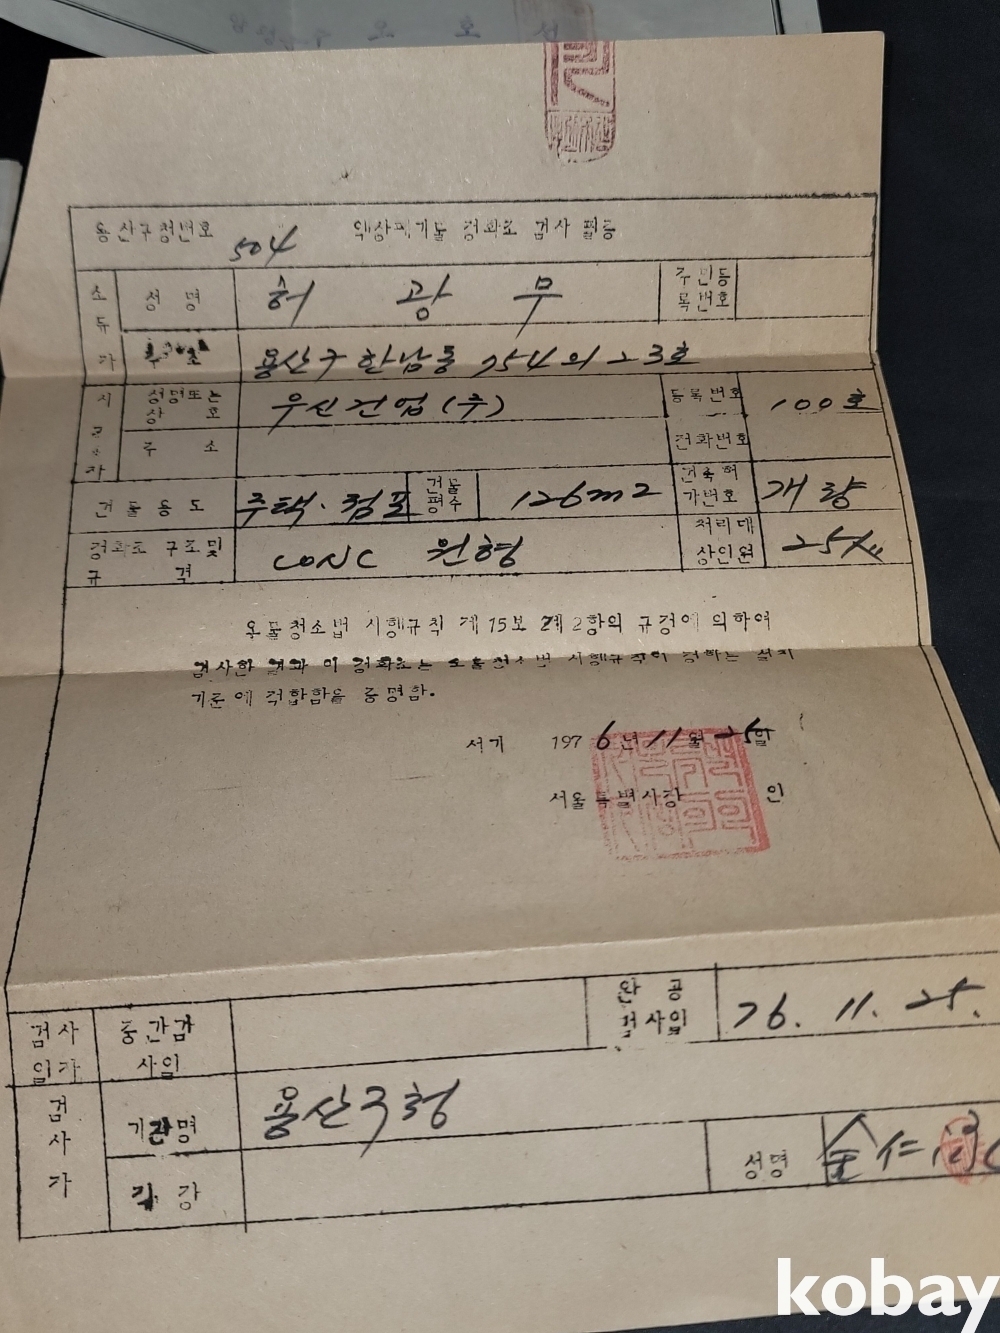 용산구청번호 504 액상폐기물 정화조 검사 필증
소유자 성명 허광무 주민등록번호
주소 용산구 한남동 754의 23호
시공자 성명또는상호 우신건업(주) 등록번호 100호
주소 전화번호
건물용도 주택·점포 건물평수 126m2 건축허가번호 개량
정화조 구조및규격 CONC 원형 처리대상인원 25人
오물청소법 시행규칙 제15보 제2항의 규정에 의하여
검사한 결과 이 정화조는 오물청소법 시행규칙이 정하는 설치
기준에 적합함을 증명함.
서기 1976년 11월 25일
서울특별시장 인
검사일자 중간검사일 완공검사일 76. 11. 25.
검사자 기관명 용산구청
직 성명 仁
kobay